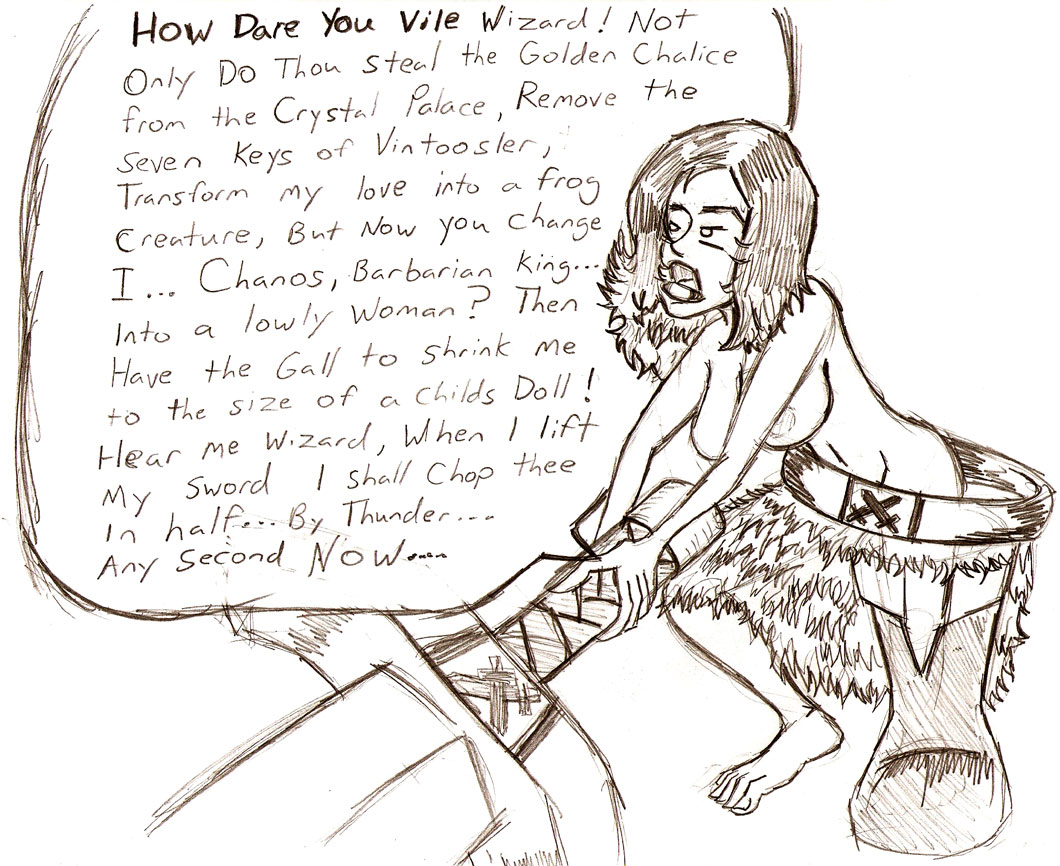 How Dare You Vile Wizard! Not
Only Do Thou Steal the Golden Chalice
from the Crystal Palace, Remove the
Seven Keys of Vintoosler,
Transform my love into a frog
Creature, But Now you change
I... Chanos, Barbarian King...
Into a lowly Woman? Then
Have the Gall to shrink me
to the size of a Childs Doll!
Hear me Wizard, When I lift
My Sword I shall Chop thee
In half... By Thunder...
Any Second Now....